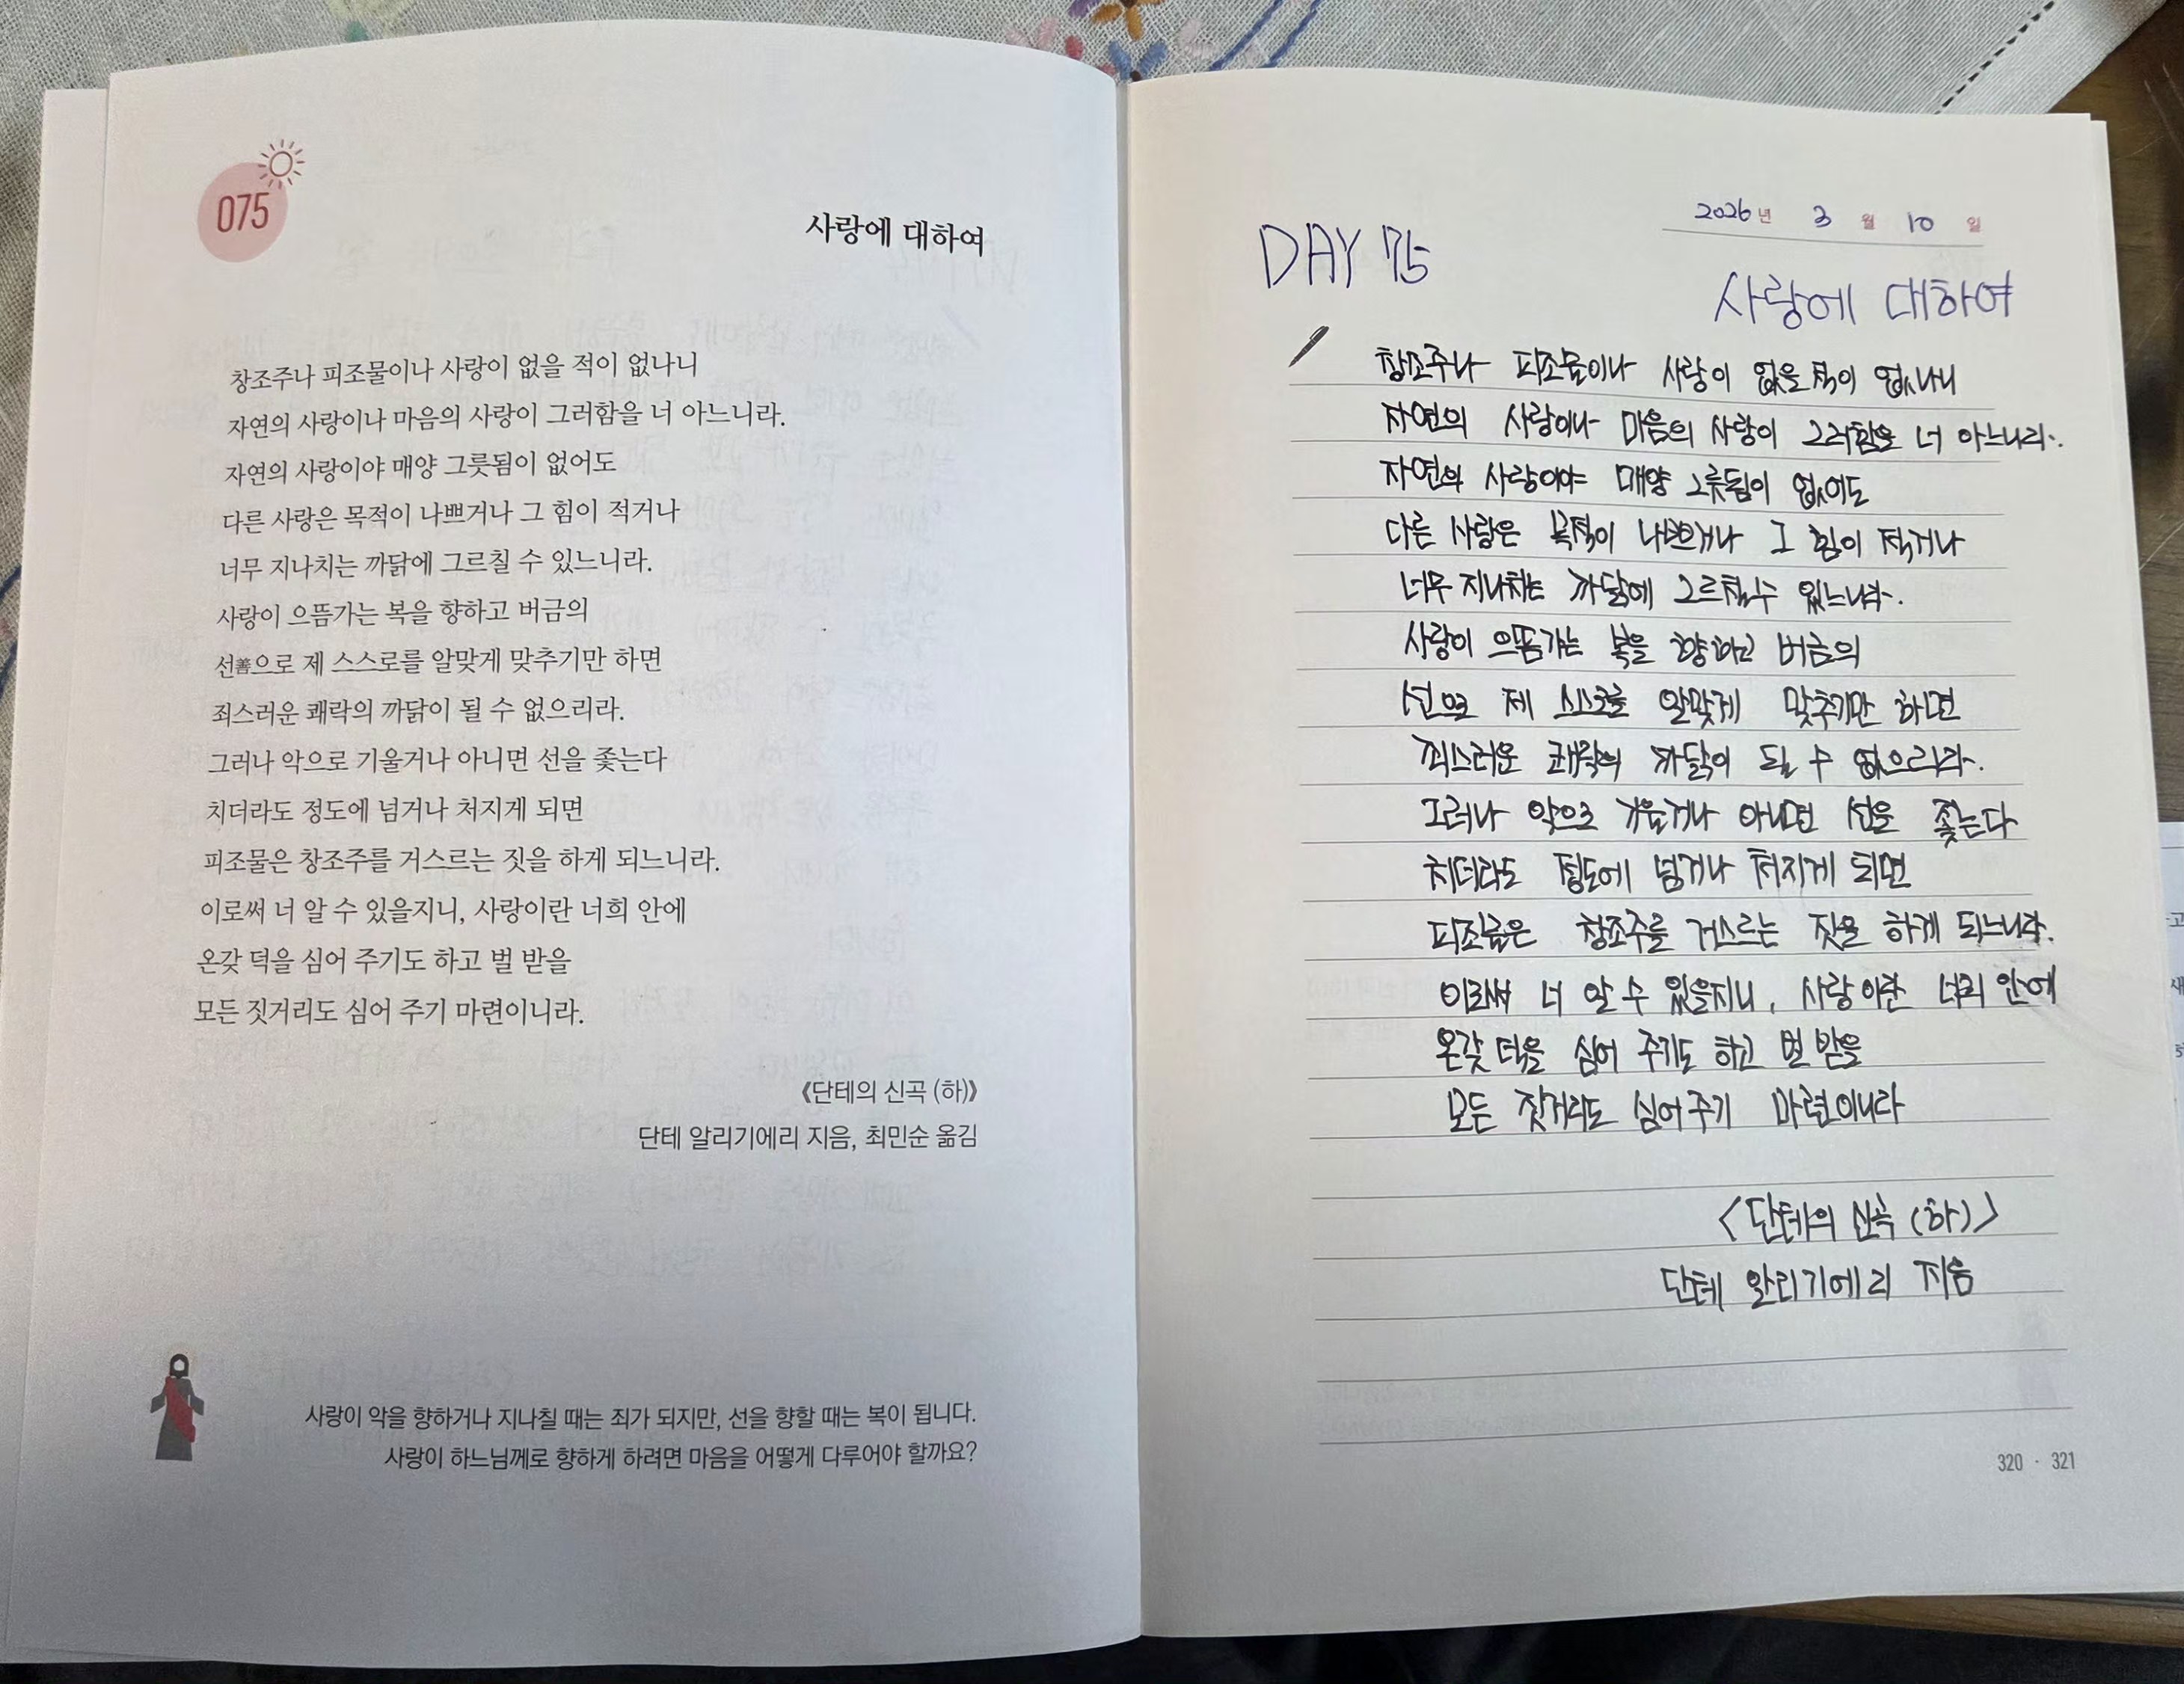 075
사랑에 대하여
창조주나 피조물이나 사랑이 없을 적이 없나니
자연의 사랑이나 마음의 사랑이 그러함을 너 아느니라.
자연의 사랑이야 매양 그릇됨이 없어도
다른 사랑은 목적이 나쁘거나 그 힘이 적거나
너무 지나치는 까닭에 그르칠 수 있느니라.
사랑이 으뜸가는 복을 향하고 버금의
선善으로 제 스스로를 알맞게 맞추기만 하면
죄스러운 쾌락의 까닭이 될 수 없으리라.
그러나 악으로 기울거나 아니면 선을 좇는다
치더라도 정도에 넘거나 처지게 되면
피조물은 창조주를 거스르는 짓을 하게 되느니라.
이로써 너 알 수 있을지니, 사랑이란 너희 안에
온갖 덕을 심어 주기도 하고 벌 받을
모든 짓거리도 심어 주기 마련이니라.
《단테의 신곡 (하)》
단테 알리기에리 지음, 최민순 옮김
사랑이 악을 향하거나 지나칠 때는 죄가 되지만, 선을 향할 때는 복이 됩니다.
사랑이 하느님께로 향하게 하려면 마음을 어떻게 다루어야 할까요?
2026년 3월 10일
DAY 75
사랑에 대하여
창조주나 피조물이나 사랑이 없을 적이 없나니
자연의 사랑이나 마음의 사랑이 그러함을 너 아느니라.
자연의 사랑이야 매양 그릇됨이 없어도
다른 사랑은 목적이 나쁘거나 그 힘이 적거나
너무 지나치는 까닭에 그르칠 수 있느니라.
사랑이 으뜸가는 복을 향하고 버금의
선으로 제 스스로를 알맞게 맞추기만 하면
죄스러운 쾌락의 까닭이 될 수 없으리라.
그러나 악으로 기울거나 아니면 선을 좇는다
치더라도 정도에 넘거나 처지게 되면
피조물은 창조주를 거스르는 짓을 하게 되느니라.
이로써 너 알 수 있을지니, 사랑이란 너희 안에
온갖 덕을 심어 주기도 하고 벌 받을
모든 짓거리도 심어 주기 마련이니라
<단테의 신곡 (하)>
단테 알리기에리 지음
320 · 321